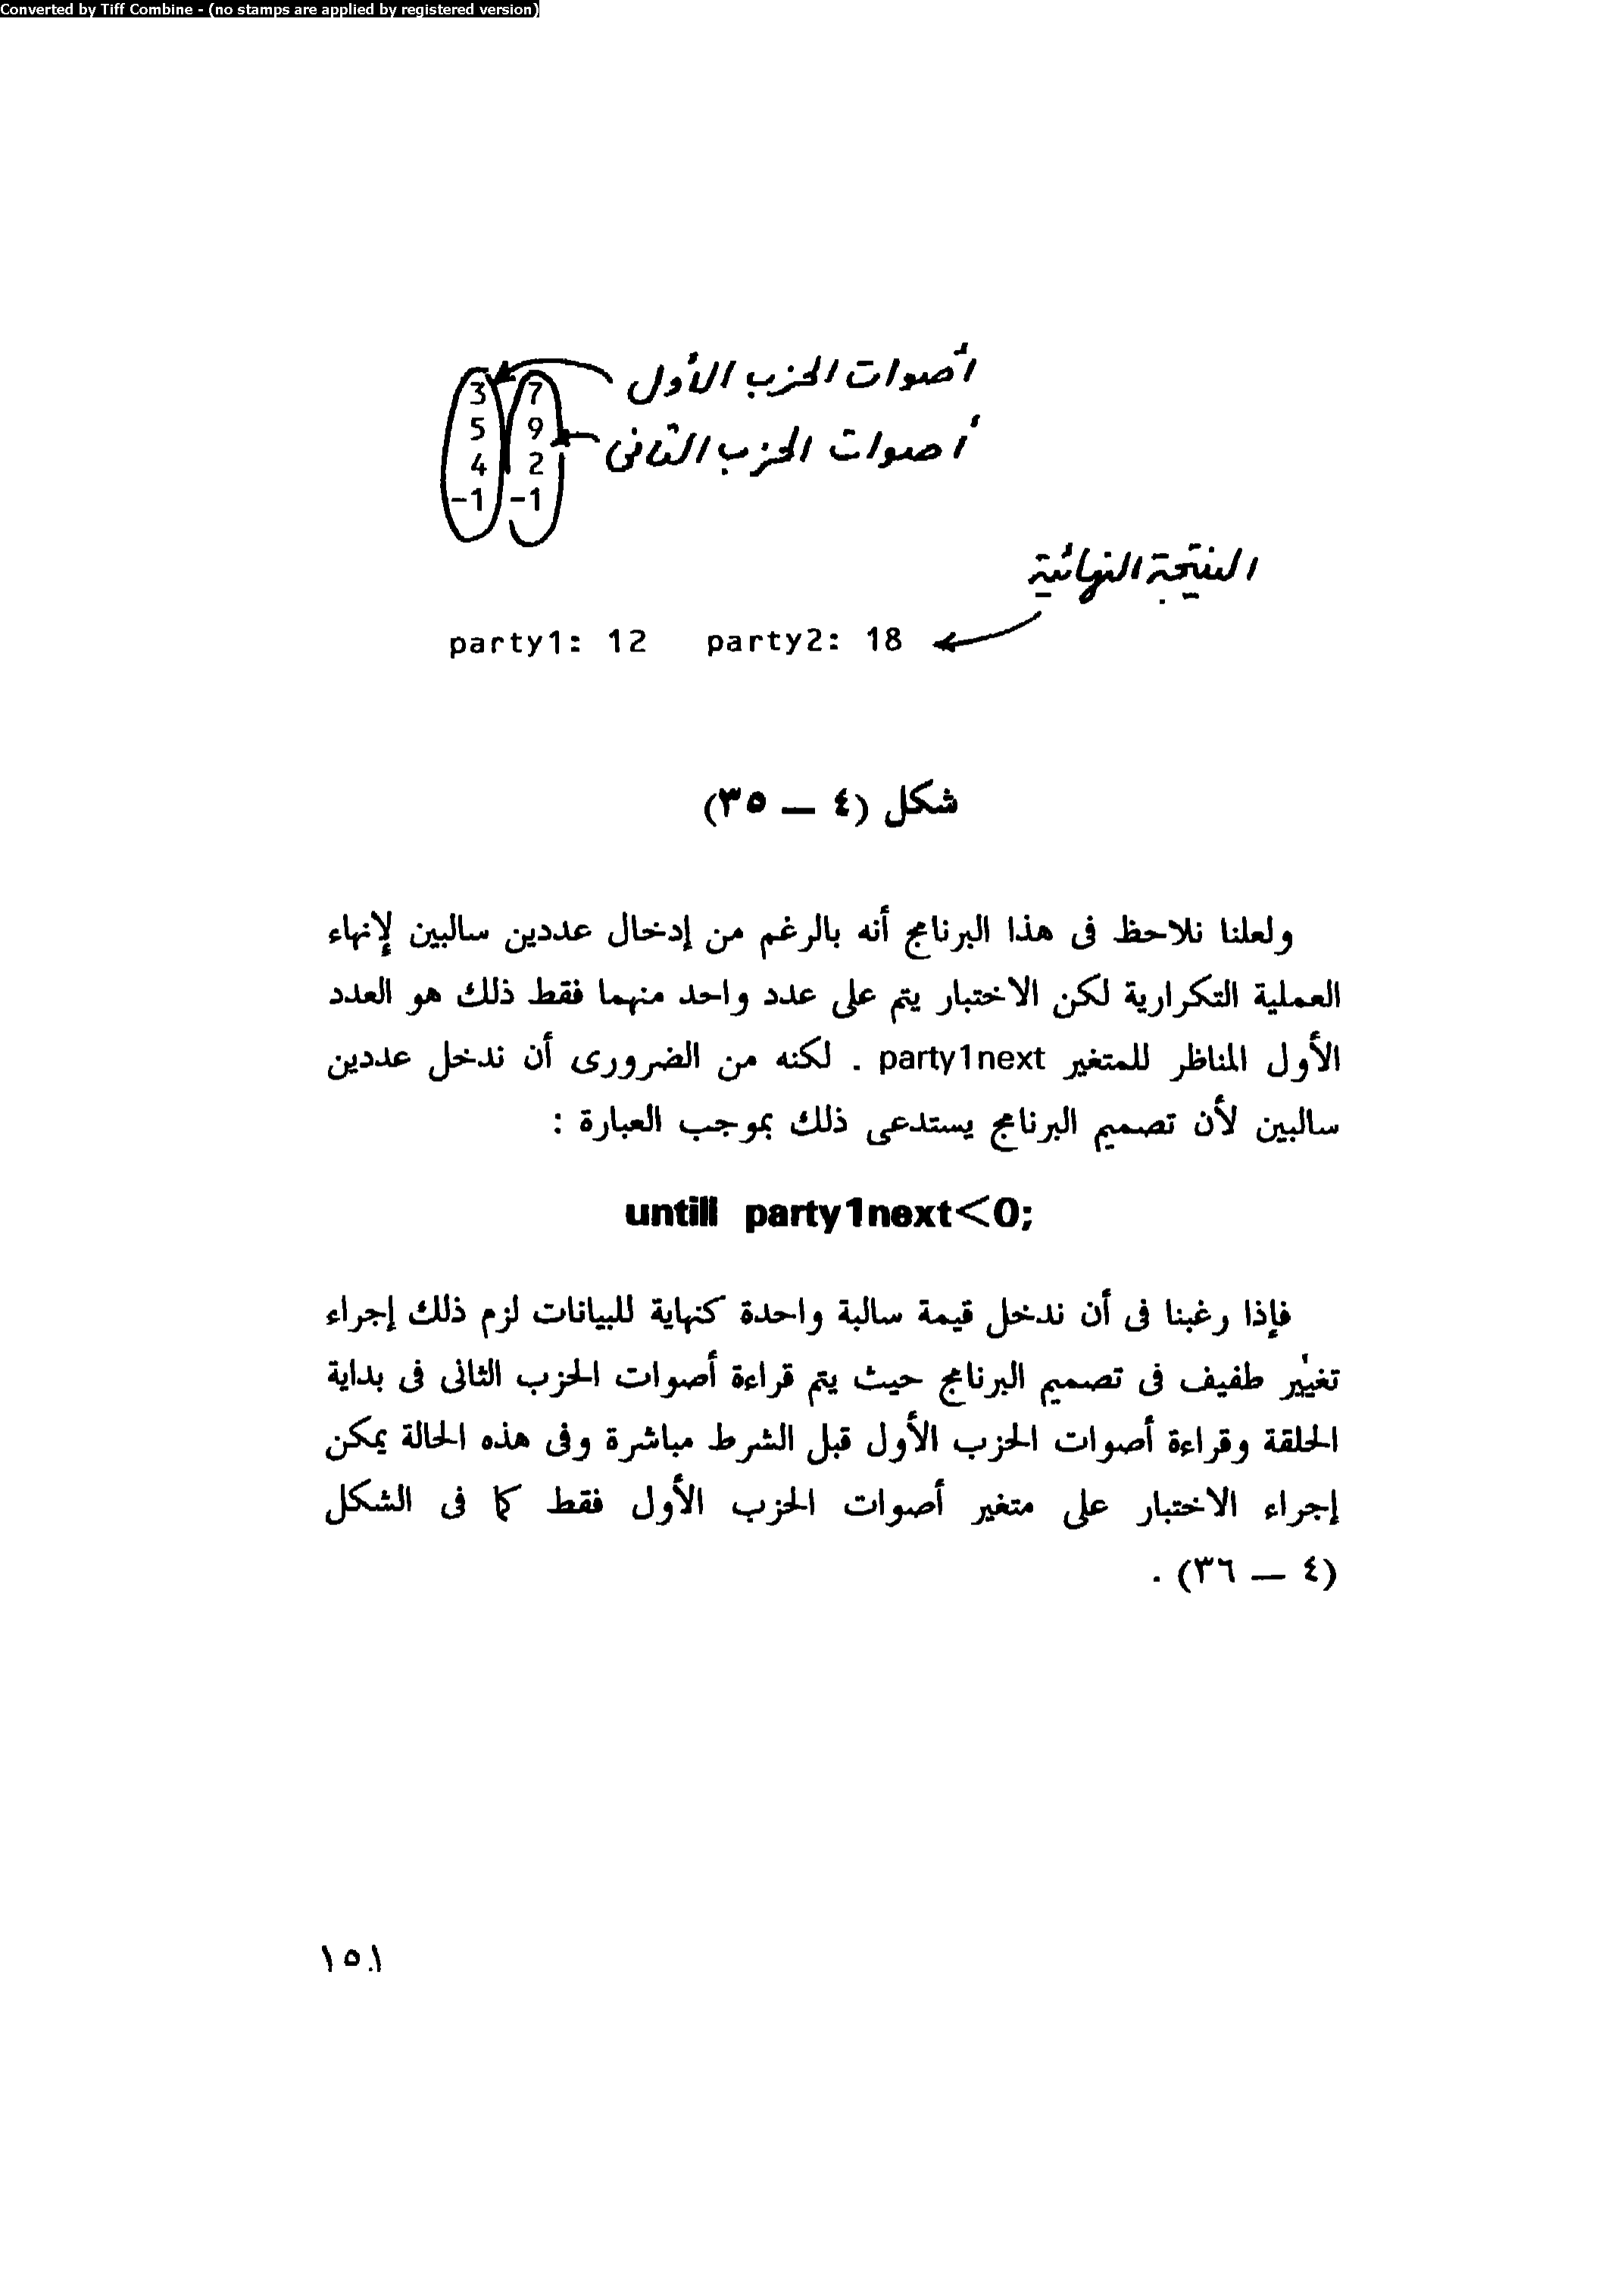 Converted by Tiff Combine - (no stamps are applied by registered version)
3 7 أصوات الحزب الأول
5 9 أصوات الحزب الثانى
4 2
-1 -1
النتيجة النهائية
party1: 12 party2: 18
شكل (٤ — ٣٥)
ولعلنا نلاحظ فى هذا البرنامج أنه بالرغم من إدخال عددين سالبين لإنهاء
العملية التكرارية لكن الاختبار يتم على عدد واحد منهما فقط ذلك هو العدد
الأول المناظر للمتغير party1next . لكنه من الضرورى أن ندخل عددين
سالبين لأن تصميم البرنامج يستدعى ذلك بموجب العبارة :
untill party1next<0;
فإذا رغبنا فى أن ندخل قيمة سالبة واحدة كنهاية للبيانات لزم ذلك إجراء
تغيير طفيف فى تصميم البرنامج حيث يتم قراءة أصوات الحزب الثانى فى بداية
الحلقة وقراءة أصوات الحزب الأول قبل الشرط مباشرة وفى هذه الحالة يمكن
إجراء الاختبار على متغير أصوات الحزب الأول فقط كما فى الشكل
(٤ — ٣٦) .
١٥١